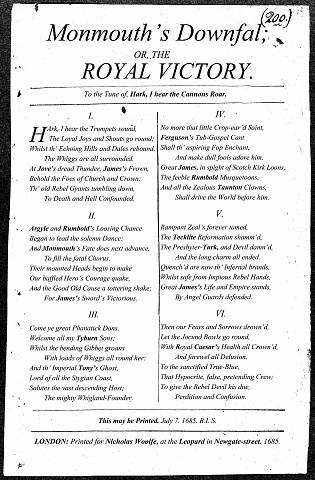 (200.)
Monmouth's Downfal;
OR, THE
ROYAL VICTORY.
To the Tune of, Hark, I hear the Cannons Roar.
I.
HArk, I hear the Trumpets sound,
The Loyal Joys and Shouts go round;
Whilst th' Echoing Hills and Dales rebound,
The Whiggs are all surrounded.
At Jove's dread Thunder, James's Frown,
Behold the Foes of Church and Crown;
Th' old Rebel Gyants tumbling down,
To Death and Hell Confounded.
II.
Argyle and Rumbold's Loosing Chance
Began to lead the solemn Dance:
And Monmouth's Fate does next advance,
To fill the fatal Chorus.
Their mounted Heads begin to make
Our baffled Hero's Courage quake,
And the Good Old Cause a tottering shake;
For James's Sword's Victorious.
III.
Come ye great Phanatick Dons,
Welcome all my Tyburn Sons;
Whilst the bending Gibbet groans
With loads of Whiggs all round her:
And th' Imperial Tony's Ghost,
Lord of all the Stygian Coast,
Salutes the vast descending Host;
The mighty Whigland-Founder.
IV.
No more that little Crop-ear'd Saint,
Ferguson's Tub-Gospel Cant
Shall th' aspiring Fop Enchant,
And make dull fools adore him.
Great James, in spight of Scotch Kirk Loons,
The feeble Rumbold Musquetoons,
And all the Zealous Taunton Clowns,
Shall drive the World before him.
V.
Rampant Zeal's forever tamed,
The Tecklite Reformation shamm'd,
The Presbyter-Turk, and Devil damn'd,
And the long charm all ended.
Quench'd are now th' Infernal brands,
Whilst safe from Impious Rebel Hands,
Great James's Life and Empire stands,
By Angel Guards defended.
VI.
Then our Fears and Sorrows drown'd,
Let the Jocund Bowls go round,
With Royal Caesar's Health all Crown'd,
And farewel all Delusion.
To the sanctified True-Blue,
That Hypocrite, false, pretending Crew;
To give the Rebel Devil his due,
Perdition and Confusion.
This may be Printed. July 7. 1685. R.L.S.
LONDON: Printed for Nicholas Woolfe, at the Leopard in Newgate-street. 1685.